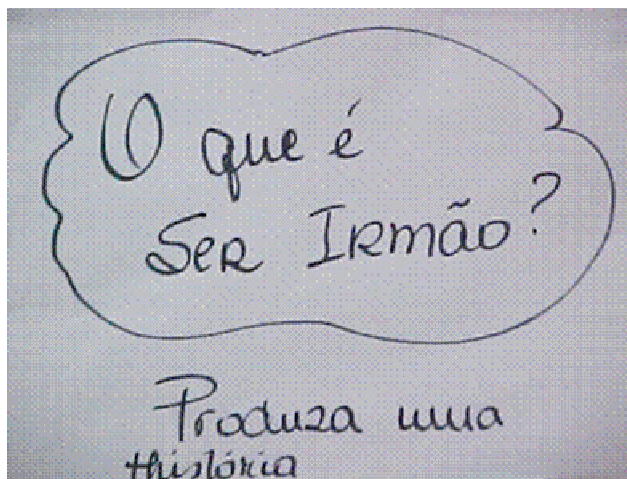 O que é
Ser Irmão?
Produza uma
história